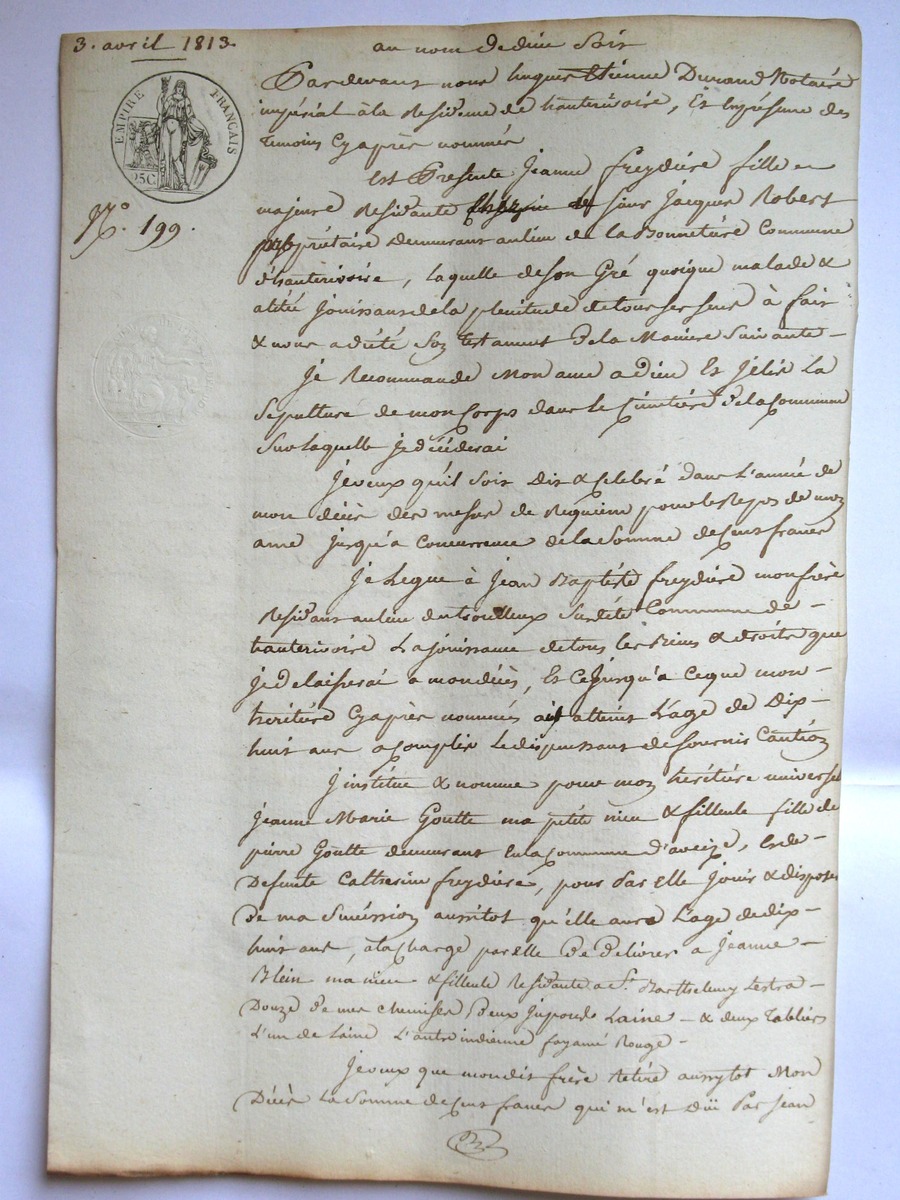 3. avril 1813.
au nom de dieu soit
EMPIRE FRANÇAIS
25C
Pardevant nous hugues Etienne Durand Notaire
impérial à la Residence de hauterivoire, Et En présence des
temoins Cyaprès nommés
N.° 199.
est Presente Jeanne freydière fille
majeure Residante sieur Jacques Robert
propriétaire demeurant au lieu de la Bonneture Commune
d'hauterivoire, laquelle de son Gré quoique malade &
alitée Jouissant de la plenitude de tous ses sens à fait
& nous a dicté Son testament de la Maniere Suivante -
Je Recommande Mon ame a dieu Et J'élis La
Sepulture de mon Corps dans le Cimetière de la Commune
Sur laquelle je décéderai
Je veux qu'il soit Dit & Celebré dans l'année de
mon décès des messes de Requiem pour le Repos de mon
ame jusqu'a Concurrence de la Somme de Cent francs
Je Legue à Jean Baptiste freydière mon frère
Residant au lieu Commune de -
hauterivoire La jouissance de tous les Biens & droits que
je delaisserai a mon décès, Et Ce Jusqu'a Ceque mon -
heritière Cyaprès nommée ait atteint L'age de Dix -
huit ans acomplis Le dispensant de fournir Caution
J'institue & nomme pour mon heritière universel
Jeanne Marie Goutte ma petite niece & filleule fille de
pierre Goutte demeurant En la Commune d'aveize, & de -
Defunte Catherine freydière, pour Par elle Jouir & disposer
De ma Succession aussitot qu'elle aura L'age de dix -
huit ans, à la Charge par elle De Délivrer a Jeanne -
Blein ma niece & filleule Residante a St. Barthelemy Lestra -
Douze de mes Chemises Deux Jupons de Laine - & deux tabliers
L'un de Laine L'autre indienne Rouge -
Je veux que mondit frère Retire aussytot Mon
Décès La Somme de Cent francs qui m'est Düe Par Jean